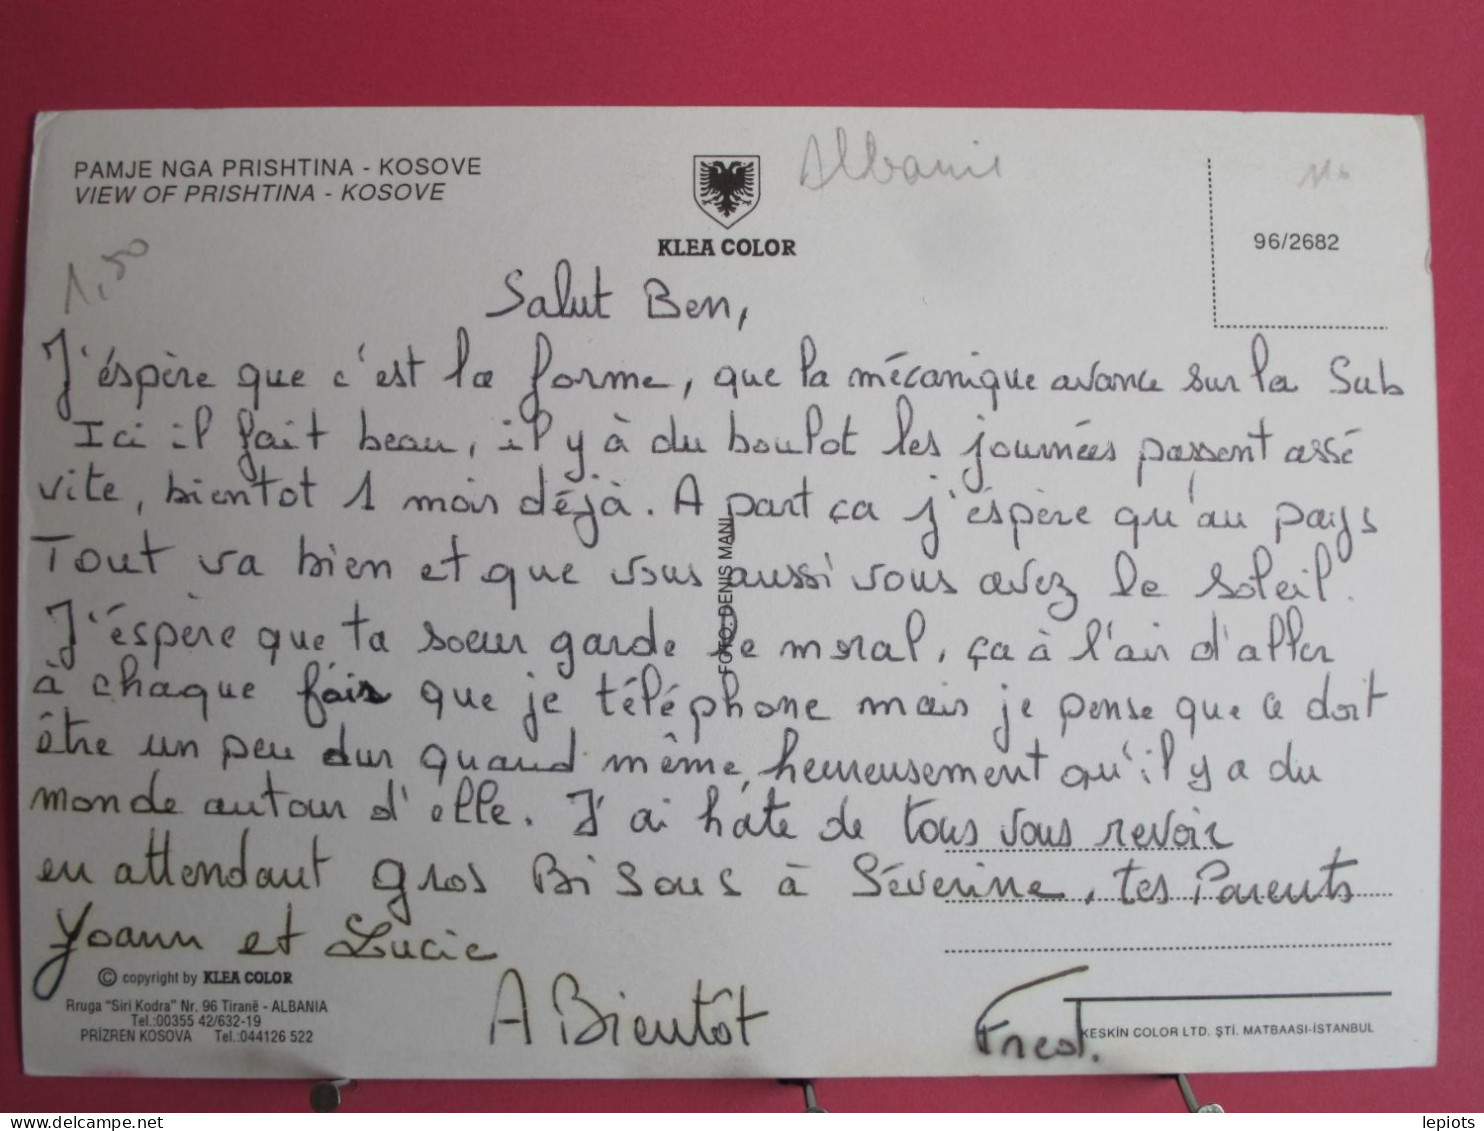 PAMJE NGA PRISHTINA - KOSOVE
VIEW OF PRISHTINA - KOSOVE
KLEA COLOR
Albanie
96/2682
1,50
Salut Ben,
J'éspère que c'est la forme, que la mécanique avance sur la Sub
Ici il fait beau, il y à du boulot les journées passent assé
vite, bientot 1 mois déjà. A part ça j'éspère qu'au pays
Tout va bien et que vous aussi vous avez le soleil.
J'éspère que ta soeur garde le moral, ça à l'air d'aller
à chaque fois que je téléphone mais je pense que ce doit
être un peu dur quand même, heureusement qu'il y a du
monde autour d'elle. J'ai hâte de tous vous revoir
en attendant gros Bisous à Séverine, tes Parents
Yoann et Lucie
A Bientôt
Fred.
FOTO: DENIS MANI
© copyright by KLEA COLOR
Rruga "Siri Kodra" Nr. 96 Tiranë - ALBANIA
Tel.:00355 42/632-19
PRİZREN KOSOVA Tel.:044126 522
KESKİN COLOR LTD. ŞTİ. MATBAASI-İSTANBUL
lepiots